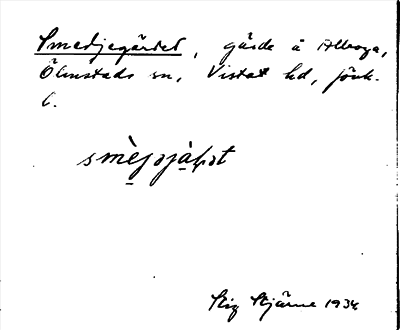 Smedjegärdet, gärde å Allboga,
Ölmstads sn, Vista hd, Jönk.
l.
smèjəjàɽət
Stig Stjärne 1934